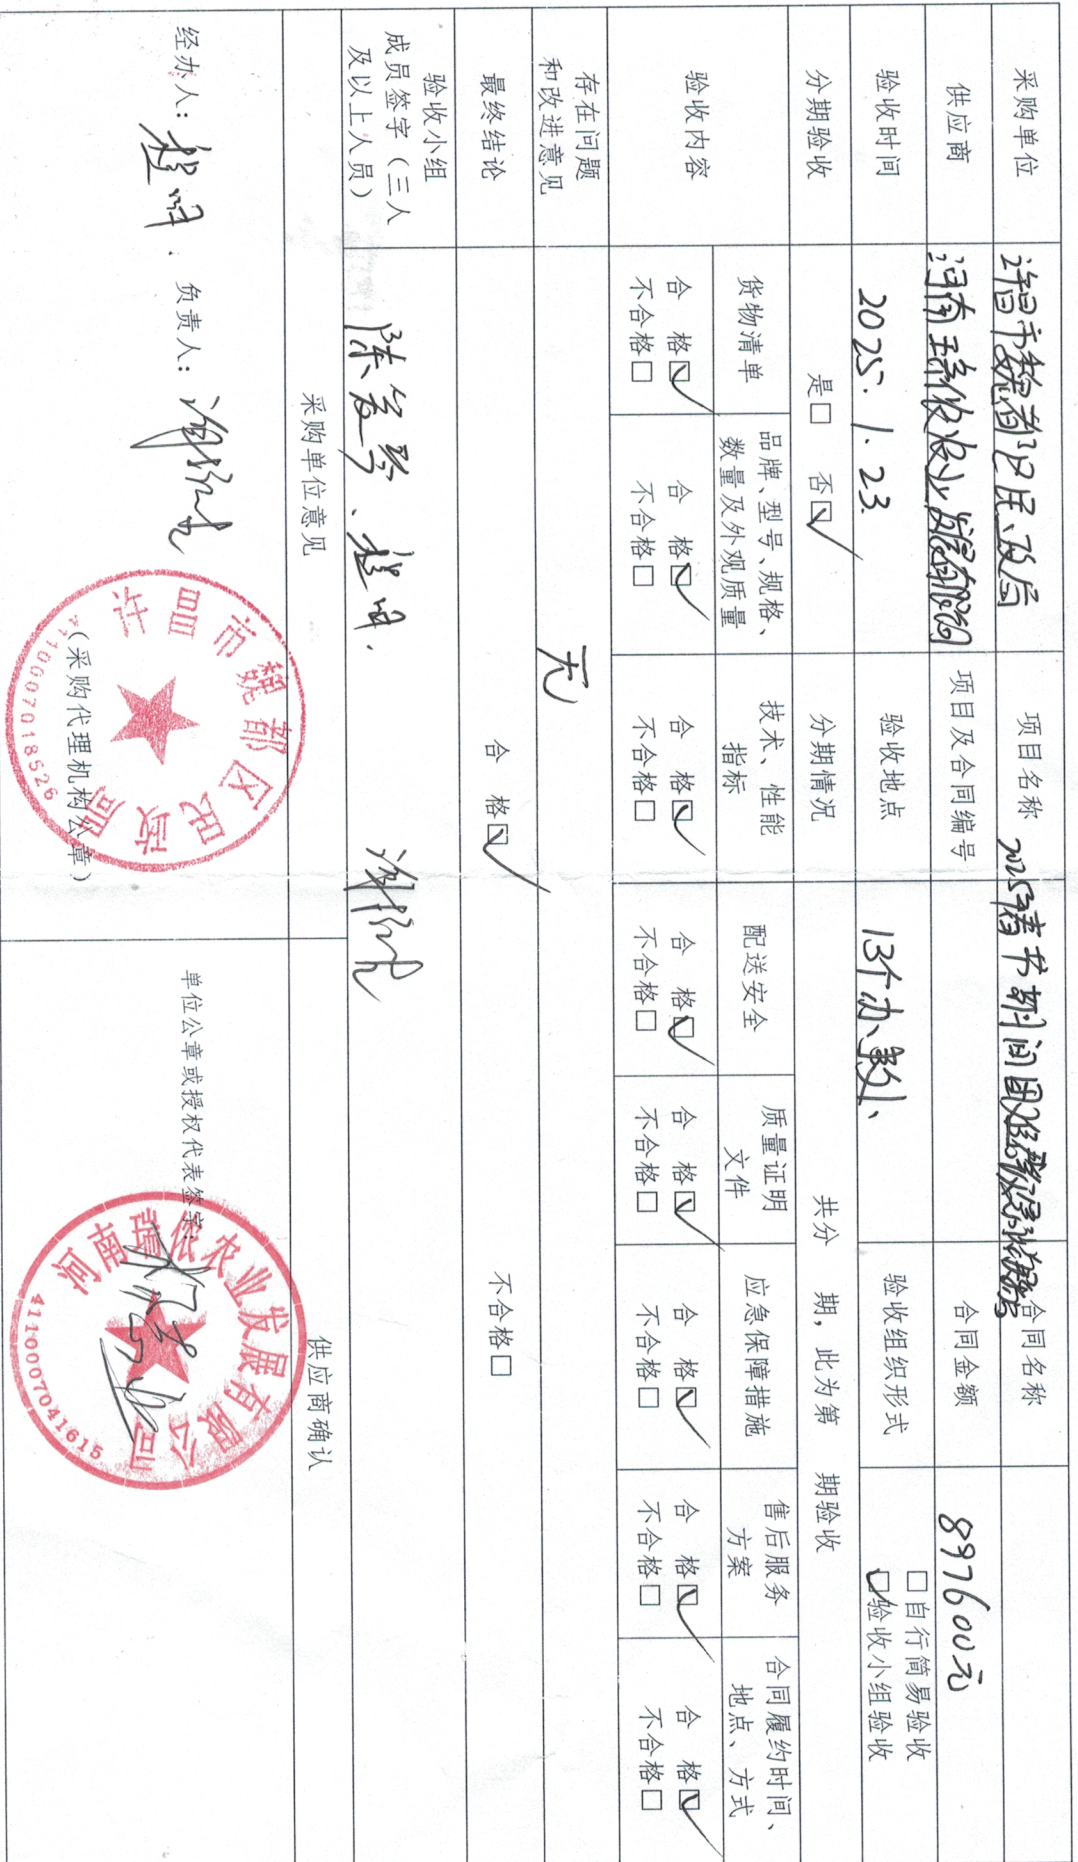 采购单位 许昌市魏都区民政局 项目名称 2025年春节期间困难群众 合同名称
供应商 河南瑞侬农业发展有限公司 项目及合同编号 合同金额 897600元
验收时间 2025.1.23. 验收地点 13个办事处 验收组织形式 □自行简易验收
☑验收小组验收
分期验收 是□ 否☑ 分期情况 共分 期，此为第 期验收
验收内容
货物清单
品牌、型号、规格、
数量及外观质量
技术、性能
指标
配送安全
质量证明
文件
应急保障措施
售后服务
方案
合同履约时间、
地点、方式
合 格☑ 合 格☑ 合 格☑ 合 格☑ 合 格☑ 合 格☑ 合 格☑ 合 格☑
不合格□ 不合格□ 不合格□ 不合格□ 不合格□ 不合格□ 不合格□ 不合格□
存在问题
和改进意见
无
最终结论 合 格☑ 不合格□
验收小组
成员签字（三人
及以上人员）
采购单位意见 供应商确认
经办人： 负责人：
单位公章或授权代表签字：
（采购代理机构公章）
许昌市魏都区民政局
4110007018526
河南瑞侬农业发展有限公司
4110007041615